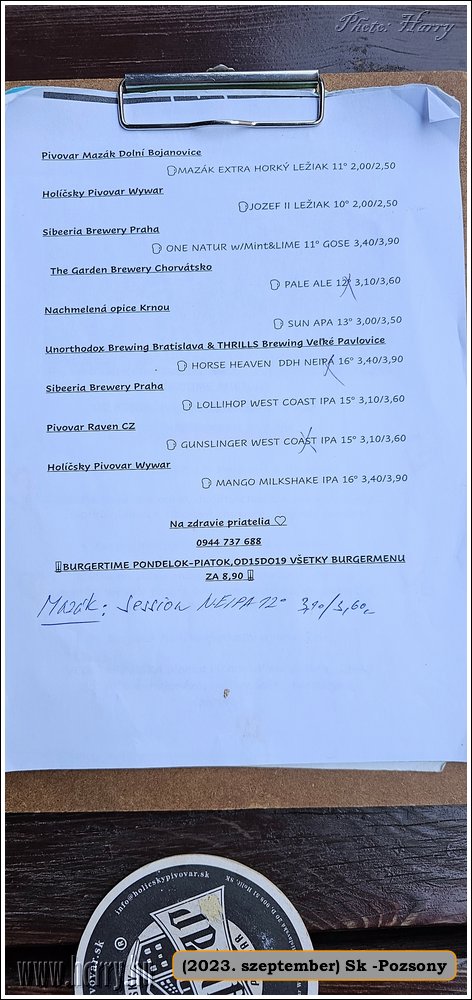 Photo: Harry
Pivovar Mazák Dolní Bojanovice
MAZÁK EXTRA HORKÝ LEŽIAK 11° 2,00/2,50
Holíčsky Pivovar Wywar
JOZEF II LEŽIAK 10° 2,00/2,50
Sibeeria Brewery Praha
ONE NATUR w/Mint&LIME 11° GOSE 3,40/3,90
The Garden Brewery Chorvátsko
PALE ALE 12° 3,10/3,60
Nachmelená opice Krnou
SUN APA 13° 3,00/3,50
Unorthodox Brewing Bratislava & THRILLS Brewing Veľké Pavlovice
HORSE HEAVEN DDH NEIPA 16° 3,40/3,90
Sibeeria Brewery Praha
LOLLIHOP WEST COAST IPA 15° 3,10/3,60
Pivovar Raven CZ
GUNSLINGER WEST COAST IPA 15° 3,10/3,60
Holíčsky Pivovar Wywar
MANGO MILKSHAKE IPA 16° 3,40/3,90
Na zdravie priatelia ♡
0944 737 688
BURGERTIME PONDELOK-PIATOK,OD15DO19 VŠETKY BURGERMENU
ZA 8,90
Mazák: Session NEIPA 12° 3,10/3,60
info@holicskypivovar.sk
(2023. szeptember) Sk -Pozsony